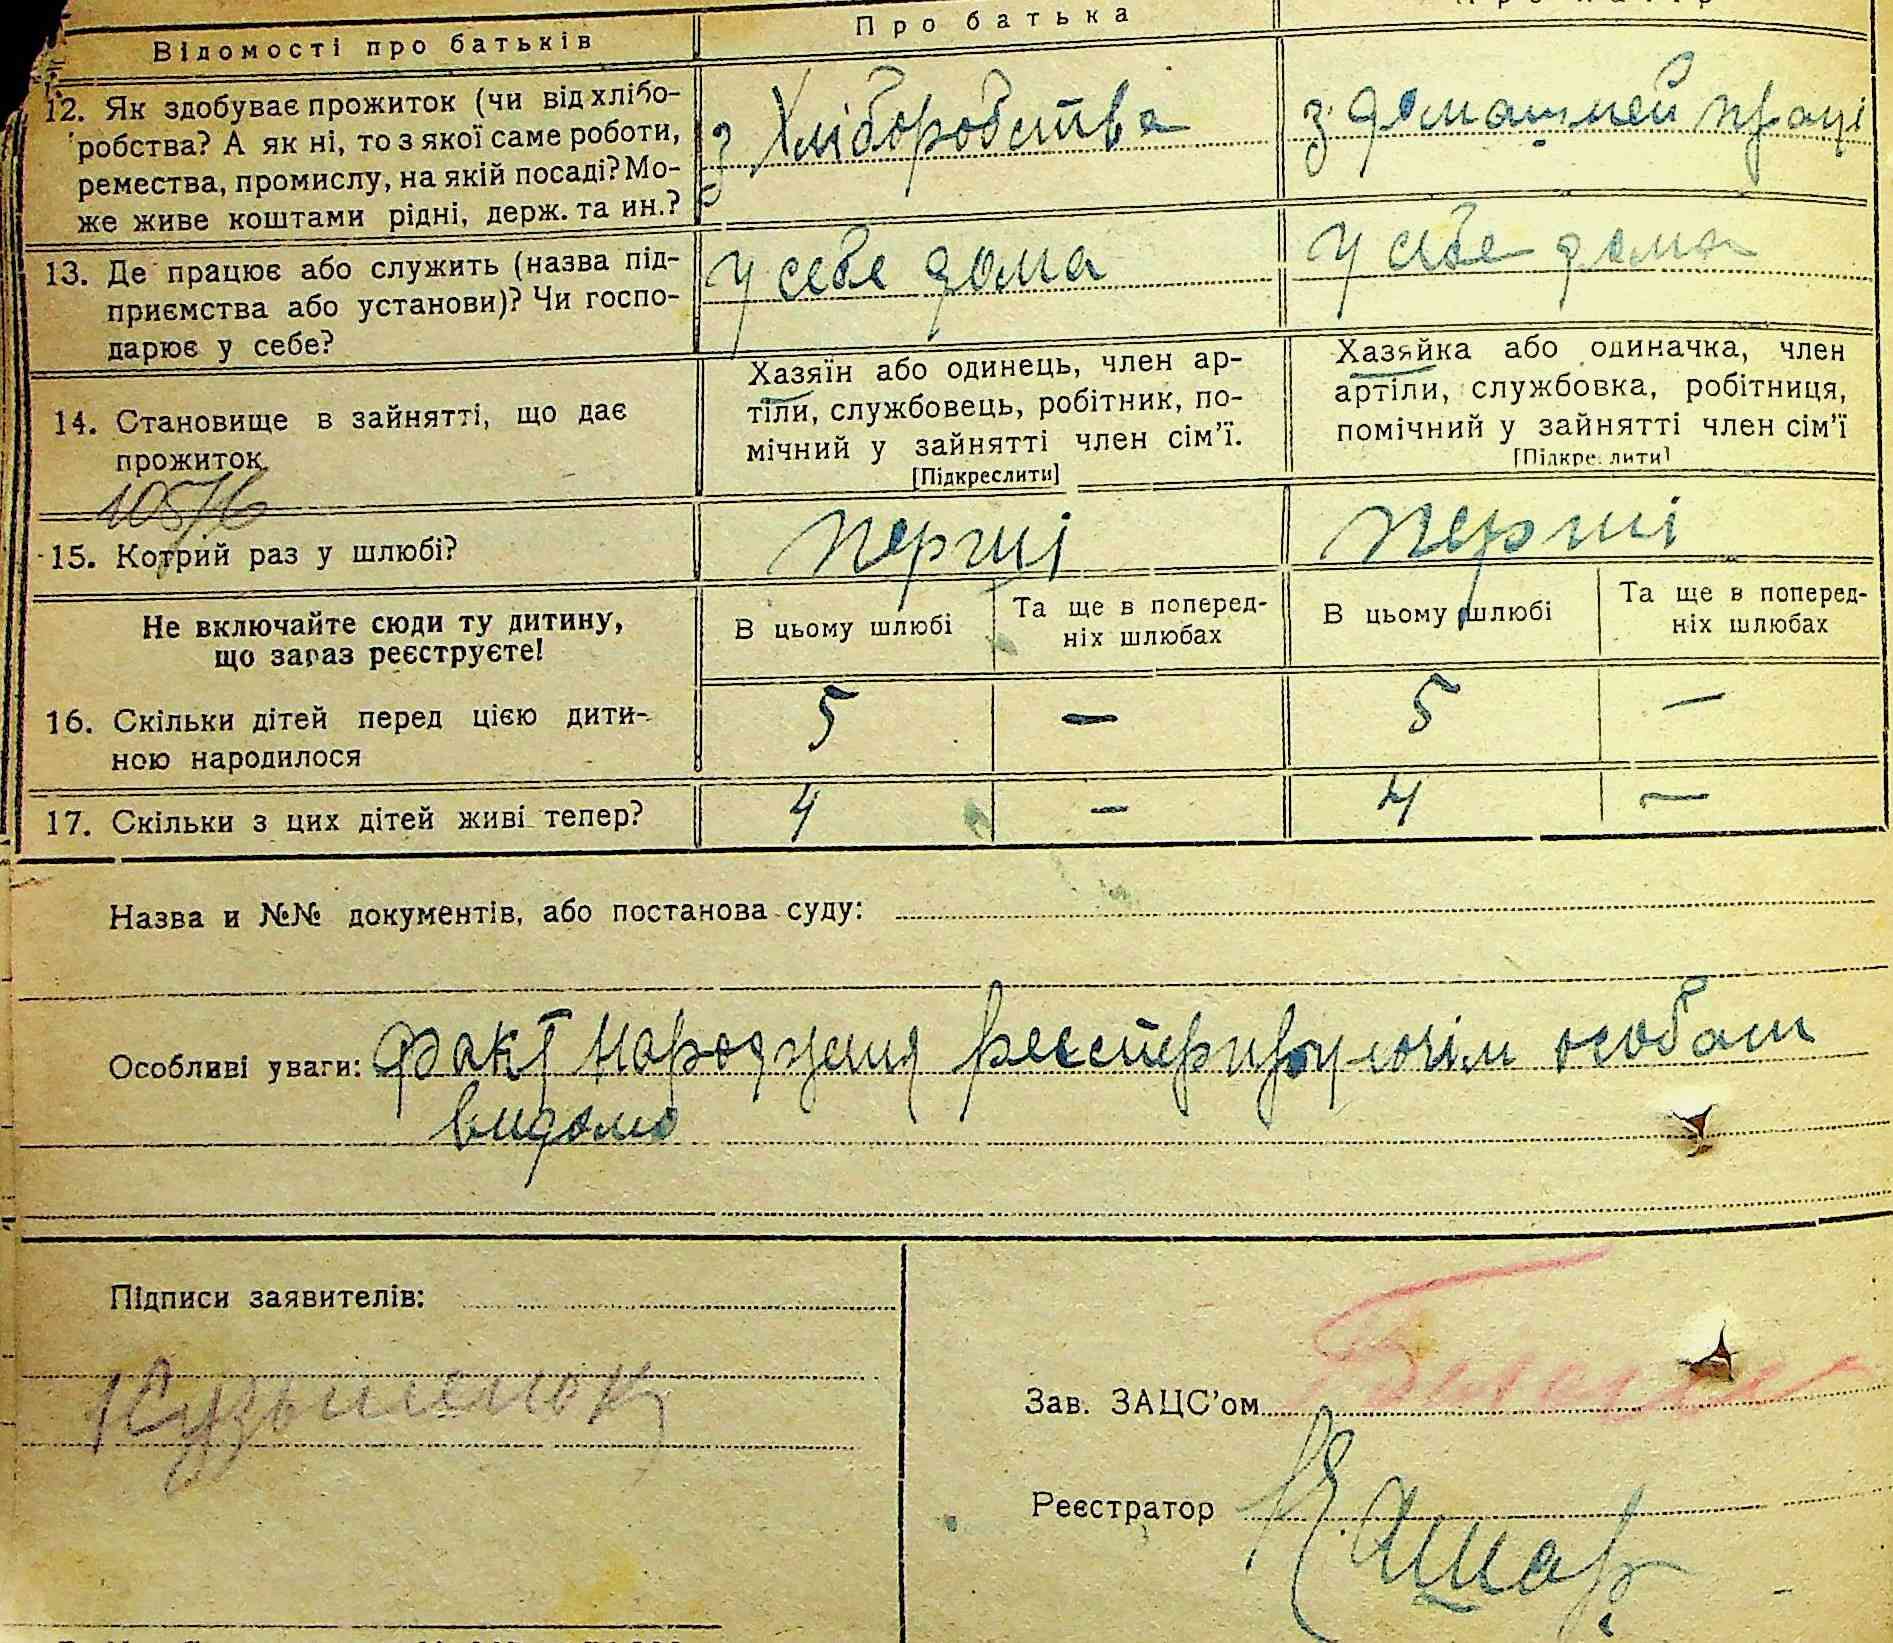 Відомості про батьків
Про батька
12. Як здобуває прожиток (чи від хлібо-
робства? А як ні, то з якої саме роботи,
ремества, промислу, на якій посаді? Мо-
же живе коштами рідні, держ. та ин.?
з хліборобства
з домашней праці
13. Де працює або служить (назва під-
приємства або установи)? Чи госпо-
дарює у себе?
у себе дома
у себе дома
14. Становище в зайнятті, що дає
прожиток
Хазяїн або одинець, член ар-
тіли, службовець, робітник, по-
мічний у зайнятті член сім'ї.
[Підкреслити]
Хазяйка або одиначка, член
артіли, службовка, робітниця,
помічний у зайнятті член сім'ї
[Підкреслити]
105/6
15. Котрий раз у шлюбі?
перші
перші
Не включайте сюди ту дитину,
що зараз реєструєте!
В цьому шлюбі
Та ще в поперед-
ніх шлюбах
В цьому шлюбі
Та ще в поперед-
ніх шлюбах
16. Скільки дітей перед цією дити-
ною народилося
5 — 5 —
17. Скільки з цих дітей живі тепер?
4 — 4 —
Назва и №№ документів, або постанова суду:
Особливі уваги: факт народження
особам
видомо
Підписи заявителів:
Зав. ЗАЦС'ом
Реєстратор